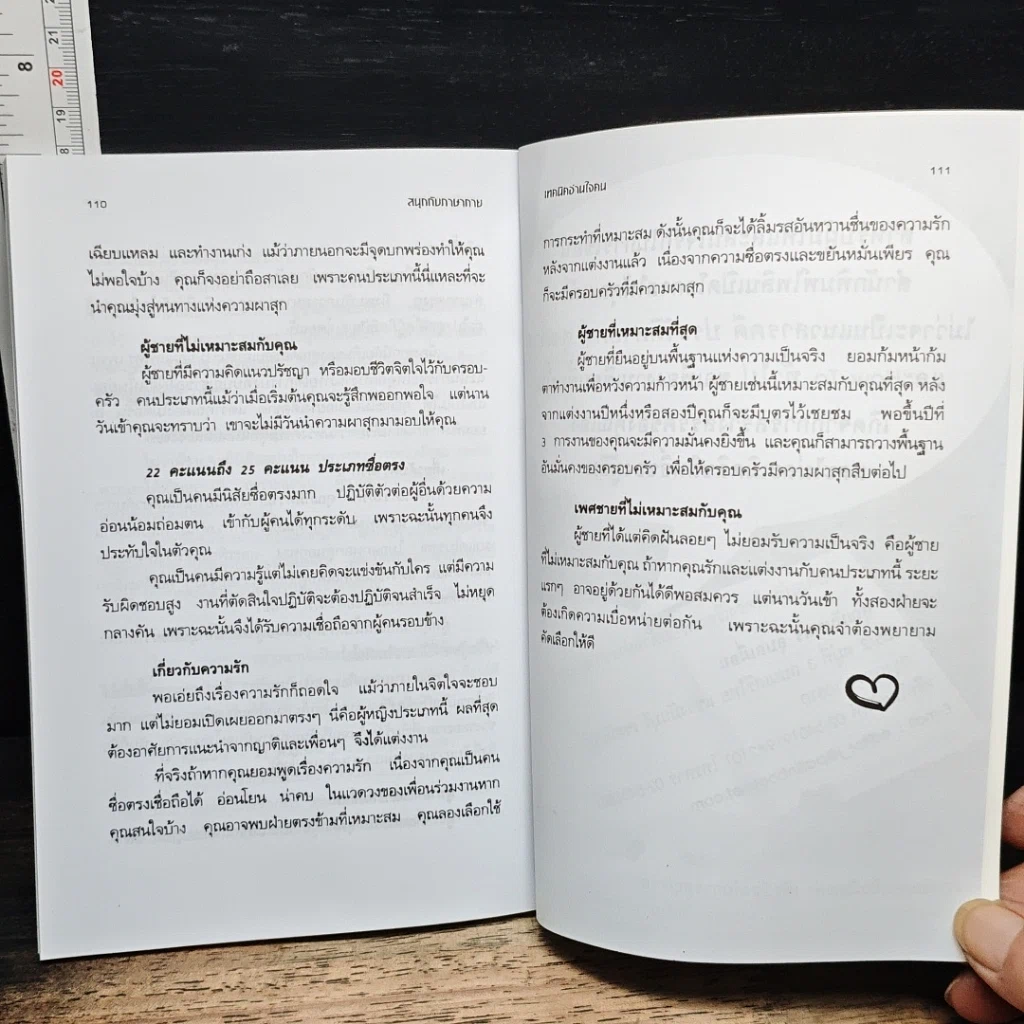 8
21
20
19
18
110 สนุกกับภาษากาย
เฉียบแหลม และทำงานเก่ง แม้ว่าภายนอกจะมีจุดบกพร่องทำให้คุณ
ไม่พอใจบ้าง คุณก็จงอย่าถือสาเลย เพราะคนประเภทนี้นี่แหละที่จะ
นำคุณมุ่งสู่หนทางแห่งความผาสุก
ผู้ชายที่ไม่เหมาะสมกับคุณ
ผู้ชายที่มีความคิดแนวปรัชญา หรือมอบชีวิตจิตใจไว้กับครอบ-
ครัว คนประเภทนี้แม้ว่าเมื่อเริ่มต้นคุณจะรู้สึกพออกพอใจ แต่นาน
วันเข้าคุณจะทราบว่า เขาจะไม่มีวันนำความผาสุกมามอบให้คุณ
22 คะแนนถึง 25 คะแนน ประเภทซื่อตรง
คุณเป็นคนมีนิสัยซื่อตรงมาก ปฏิบัติตัวต่อผู้อื่นด้วยความ
อ่อนน้อมถ่อมตน เข้ากับผู้คนได้ทุกระดับ เพราะฉะนั้นทุกคนจึง
ประทับใจในตัวคุณ
คุณเป็นคนมีความรู้แต่ไม่เคยคิดจะแข่งขันกับใคร แต่มีความ
รับผิดชอบสูง งานที่ตัดสินใจปฏิบัติจะต้องปฏิบัติจนสำเร็จ ไม่หยุด
กลางคัน เพราะฉะนั้นจึงได้รับความเชื่อถือจากผู้คนรอบข้าง
เกี่ยวกับความรัก
พอเอ่ยถึงเรื่องความรักก็ถอดใจ แม้ว่าภายในจิตใจจะชอบ
มาก แต่ไม่ยอมเปิดเผยออกมาตรงๆ นี่คือผู้หญิงประเภทนี้ ผลที่สุด
ต้องอาศัยการแนะนำจากญาติและเพื่อนๆ จึงได้แต่งงาน
ที่จริงถ้าหากคุณยอมพูดเรื่องความรัก เนื่องจากคุณเป็นคน
ซื่อตรงเชื่อถือได้ อ่อนโยน น่าคบ ในแวดวงของเพื่อนร่วมงานหาก
คุณสนใจบ้าง คุณอาจพบฝ่ายตรงข้ามที่เหมาะสม คุณลองเลือกใช้
เทคนิคอ่านใจคน 111
การกระทำที่เหมาะสม ดังนั้นคุณก็จะได้ลิ้มรสอันหวานชื่นของความรัก
หลังจากแต่งงานแล้ว เนื่องจากความซื่อตรงและขยันหมั่นเพียร คุณ
ก็จะมีครอบครัวที่มีความผาสุก
ผู้ชายที่เหมาะสมที่สุด
ผู้ชายที่ยืนอยู่บนพื้นฐานแห่งความเป็นจริง ยอมก้มหน้าก้ม
ตาทำงานเพื่อหวังความก้าวหน้า ผู้ชายเช่นนี้เหมาะสมกับคุณที่สุด หลัง
จากแต่งงานปีหนึ่งหรือสองปีคุณก็จะมีบุตรไว้เชยชม พอขึ้นปีที่
3 การงานของคุณจะมีความมั่นคงยิ่งขึ้น และคุณก็สามารถวางพื้นฐาน
อันมั่นคงของครอบครัว เพื่อให้ครอบครัวมีความผาสุกสืบต่อไป
เพศชายที่ไม่เหมาะสมกับคุณ
ผู้ชายที่ได้แต่คิดฝันลอยๆ ไม่ยอมรับความเป็นจริง คือผู้ชาย
ที่ไม่เหมาะสมกับคุณ ถ้าหากคุณรักและแต่งงานกับคนประเภทนี้ ระยะ
แรกๆ อาจอยู่ด้วยกันได้ดีพอสมควร แต่นานวันเข้า ทั้งสองฝ่ายจะ
ต้องเกิดความเบื่อหน่ายต่อกัน เพราะฉะนั้นคุณจำต้องพยายาม
คัดเลือกให้ดี